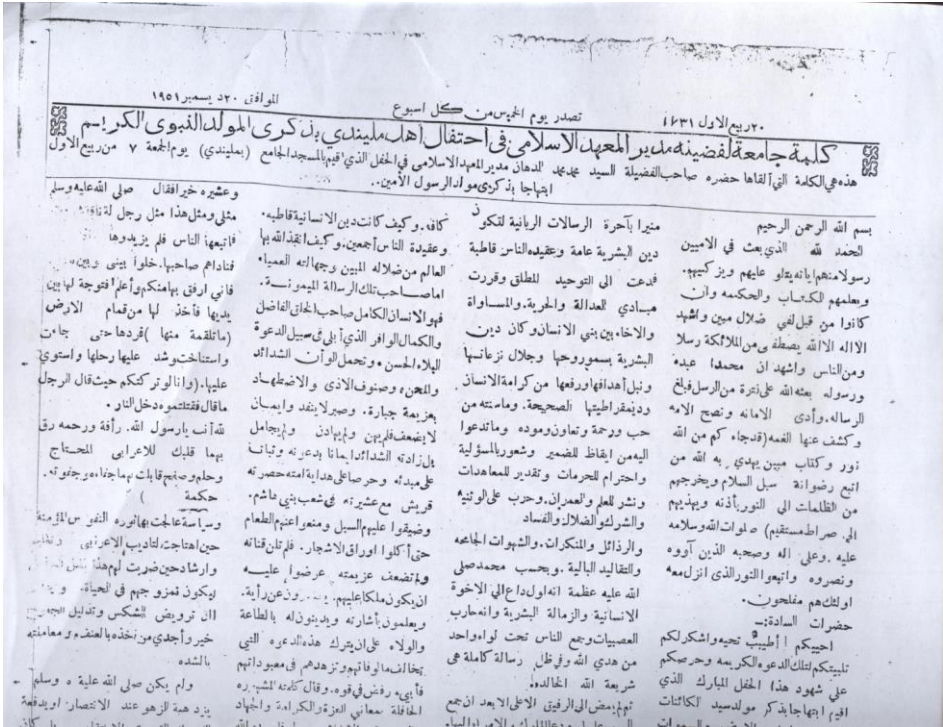 ٢٠ ربيع الاول ١٣٧١
تصدر يوم الخميس من كل اسبوع
الموافق ٢٠ ديسمبر ١٩٥١
كلمة جامعة لفضيلة مدير المعهد الاسلامى فى احتفال أهل مليندي بذكرى المولد النبوى الكريم
هذه هي الكلمة التي ألقاها حضره صاحب الفضيلة السيد محمد الدهان مدير المعهد الاسلامى في الحفل الذي اقيم بالمسجد الجامع (بمليندي) يوم الجمعة ٧ من ربيع الاول
ابتهاجا بذكرى مولد الرسول الأمين..
بسم الله الرحمن الرحيم
الحمد لله الذي بعث في الاميين
رسولا منهم اياته يتلو عليهم ويزكيهم.
ويعلمهم الكتاب والحكمه وان
كانوا من قبل لفي ضلال مبين واشهد
الااله الاالله يصطفى من الملائكة رسلا
ومن الناس واشهد ان محمدا عبده
ورسوله بعثه الله على فترة من الرسل فبلغ
الرساله. وأدى الامانه ونصح الامه
وكشف عنها الغمه (قدجاء كم من الله
نور وكتاب مبين يهدي به الله من
اتبع رضوانة سبل السلام ويخرجهم
من الظلمات الى النور بأذنه ويهديهم
الى صراط مستقيم) صلوات الله وسلامه
عليه. وعلى اله وصحبه الذين آووه
ونصروه واتبعوا النور الذى انزل معه
اولئك هم مفلحون.
حضرات السادة:ـ
احييكم أطيب تحيه واشكر لكم
تلبيتكم لتلك الدعوه الكريمه وحرصكم
على شهود هذا الحفل المبارك الذي
اقيم ابتهاجا بذكر مولد سيد الكائنات
منيرا بآخرة الرسالات الربانية لتكون
دين البشرية عامة وعقيده الناس قاطبة
فدعت الى التوحيد المطلق وقررت
مبادي للعدالة والحرية. والمساواة
والاخاء بين بنى الانسان وكان دين
البشرية بسمو روحها وجلال نزعاتها
ونبل أهدافها ورفعها من كرامة الانسان
وديمقراطيتها الصحيحة. وماسنته من
حب ورحمة وتعاون وموده وماتدعوا
اليه من ايقاظ للضمير وشعور بالمسؤلية
واحترام للحرمات وتقدير للمعاهدات
ونشر للعلم والعمران. وحرب على الوثنيه
والشرك والضلال والفساد
والرذائل والمنكرات. والشهوات الجامحه
والتقاليد البالية. وبحسب محمد صلى
الله عليه عظمة انه اول داع الى الاخوة
الانسانية والزمالة البشرية وانه حارب
العصبيات وجمع الناس تحت لواء واحد
من هدي الله وفى ظل رسالة كاملة هى
شريعة الله الخالده.
ثم لم يمض الى الرفيق الاعلى الا بعد ان جمع
كافه. وكيف كانت دين الانسانية قاطبه.
وعقيدة الناس أجمعين. وكيف انقذ الله بها
العالم من ضلاله المبين وجهالته العمياء.
اما صاحب تلك الرسالة الميمونة.
فهو الانسان الكامل صاحب الخلق الفاضل
والكمال الوافر الذي أبلى فى سبيل الدعوة
البلاء الحسن. وتحمل الوأن الشدائد
والمحن وصنوف الاذى والاضطهاد
بعزيمة جبارة. وصبر لا ينفد وايمان
لايضعف فلم يهن ولم يهادن ولم يجامل
بل زادته الشدائد ايمانا بدعوته وثباتا
على مبدئه وحرصا على هداية امته حصرته
قريش مع عشيرته فى شعب بنى هاشم.
وضيقوا عليهم السبل ومنعوا عنهم الطعام
حتى أكلوا اوراق الاشجار. فلم تلن قناته
ولم تضعف عزيمته عرضوا عليه
ان يكون ملكا عليهم. عن رأية.
ويعملون بأشارته ويدينون له بالطاعة
والولاء على ان يترك هذه الدعوه التي
تخالف مالوفاتهم وتزهدهم فى معبوداتهم
فأبى. ورفض فى قوه. وقال كلمته المشهوره
الحافلة بمعاني العزة والكرامة والجهاد
وعشيره خيرا فقال صلى الله عليه وسلم
مثلى ومثل هذا مثل رجل له ناقة
فاتبعها الناس فلم يزيدوها
فناداهم صاحبها. خلوا بينى وبين
فاني ارفق بها منكم وأعلم فتوجة لها بين
يديها فأخذ لها من قمام الارض
(ماتلقمة منها) فردها حتى جاءت
واستناخت وشد عليها رحلها واستوي
عليها. (وانا لو تركتكم حيث قال الرجل
ماقال فقتلتموه دخل النار.
لله أنت يارسول الله. رأفة ورحمه رق
بهما قلبك للاعرابي المحتاج
وحلم وصفح قابلت بهما جفاءه وجفوته.
حكمة
وسياسة عالجت بها ثوره النفوس المؤمنة
حين اهتاجت لتاديب الاعرابى
وارشاد حين ضربت لهم هذا المثل
ليكون نموزجهم في الحياة.
ان ترويض الشكس وتذليل الجموح
خير وأجدي من أخذه بالعنف ومعاملته
بالشده
ولم يكن صلى الله عليه وسلم
يزدهيه الزهو عند الانتصار. او يدفعة